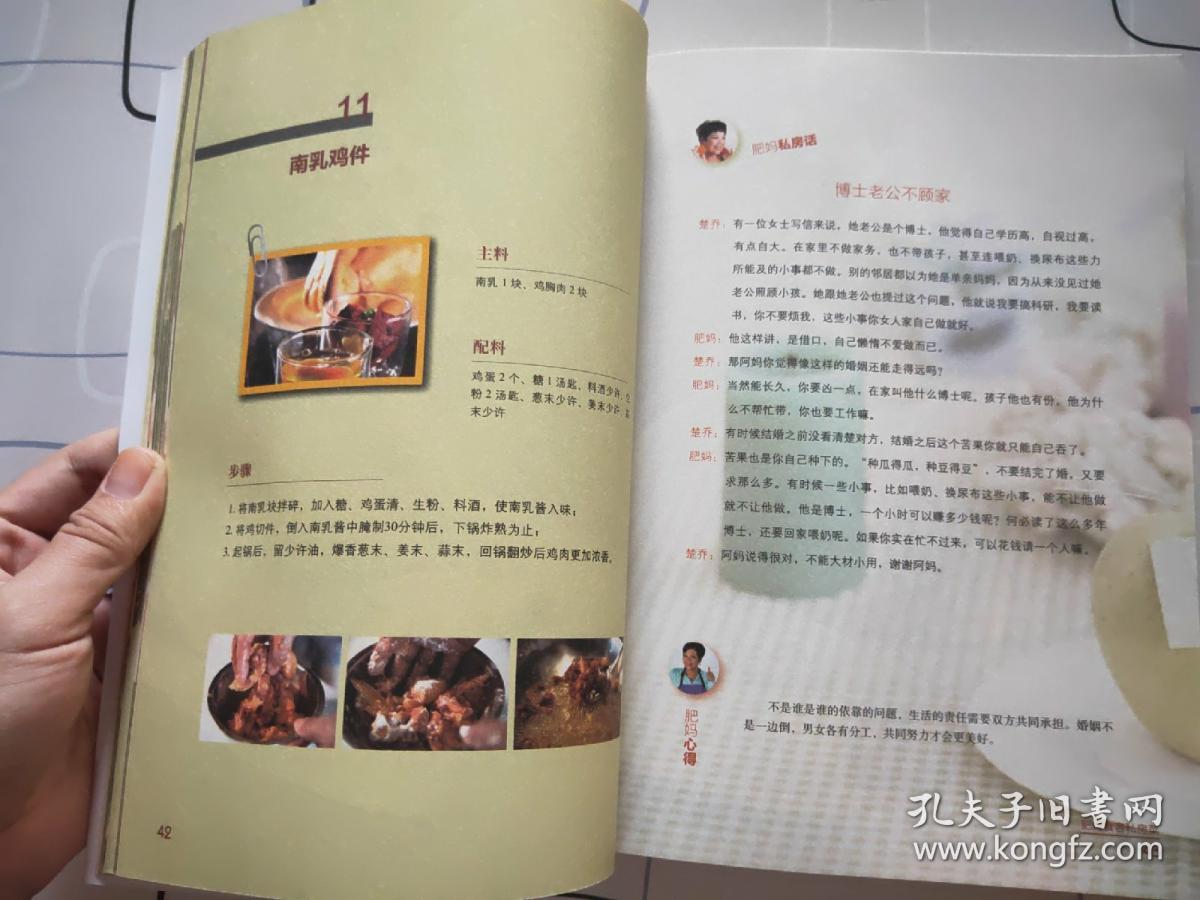 11
南乳鸡件
主料
南乳1块、鸡胸肉2块
配料
鸡蛋2个、糖1汤匙、料酒少许、
粉2汤匙、葱末少许、姜末少许、
末少许
步骤
1. 将南乳块拌碎，加入糖、鸡蛋清、生粉、料酒，使南乳酱入味；
2. 将鸡切件，倒入南乳酱中腌制30分钟后，下锅炸熟为止；
3. 起锅后，留少许油，爆香葱末、姜末、蒜末，回锅翻炒后鸡肉更加浓香。
42
肥妈私房话
博士老公不顾家
楚乔：有一位女士写信来说，她老公是个博士，他觉得自己学历高，自视过高，
有点自大。在家里不做家务，也不带孩子，甚至连喂奶、换尿布这些力
所能及的小事都不做。别的邻居都以为她是单亲妈妈，因为从来没见过她
老公照顾小孩。她跟她老公也提过这个问题，他就说我要搞科研，我要读
书，你不要烦我，这些小事你女人家自己做就好。
肥妈：他这样讲，是借口，自己懒惰不爱做而已。
楚乔：那阿妈你觉得像这样的婚姻还能走得远吗？
肥妈：当然能长久，你要凶一点，在家叫他什么博士呢。孩子他也有份，他为什
么不帮忙带，你也要工作嘛。
楚乔：有时候结婚之前没看清楚对方，结婚之后这个苦果你就只能自己吞了。
肥妈：苦果也是你自己种下的。“种瓜得瓜，种豆得豆”，不要结完了婚，又要
求那么多。有时候一些小事，比如喂奶、换尿布这些小事，能不让他做
就不让他做。他是博士，一个小时可以赚多少钱呢？何必读了这么多年
博士，还要回家喂奶呢。如果你实在忙不过来，可以花钱请一个人嘛。
楚乔：阿妈说得很对，不能大材小用，谢谢阿妈。
肥妈心得
不是谁是谁的依靠的问题，生活的责任需要双方共同承担。婚姻不
是一边倒，男女各有分工，共同努力才会更美好。
孔夫子旧书网
www.kongfz.com